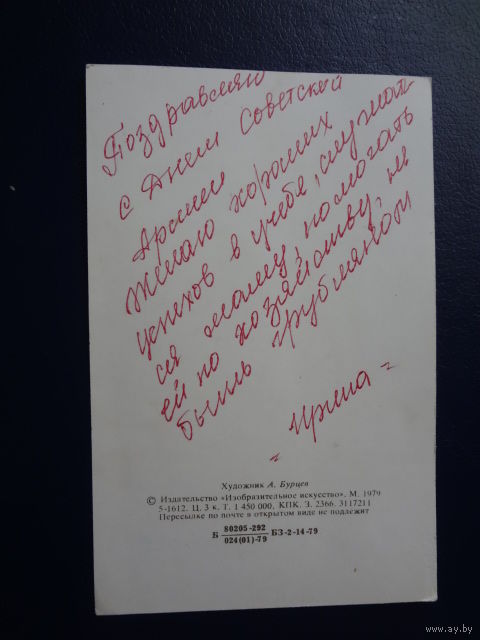 Поздравляю
с Днем Советской
Армии
Желаю хороших
успехов в учебе, слушать
ся маму, помогать
ей по хозяйству, не
быть грубияном
= Ирина =
Художник А. Бурцев
© Издательство «Изобразительное искусство». М. 1979
5-1612. Ц. 3 к. Т. 1 450 000, КПК. З. 2366. 3117211
Пересылке по почте в открытом виде не подлежит
Б 80205-292 БЗ-2-14-79
024(01)-79
www.ay.by